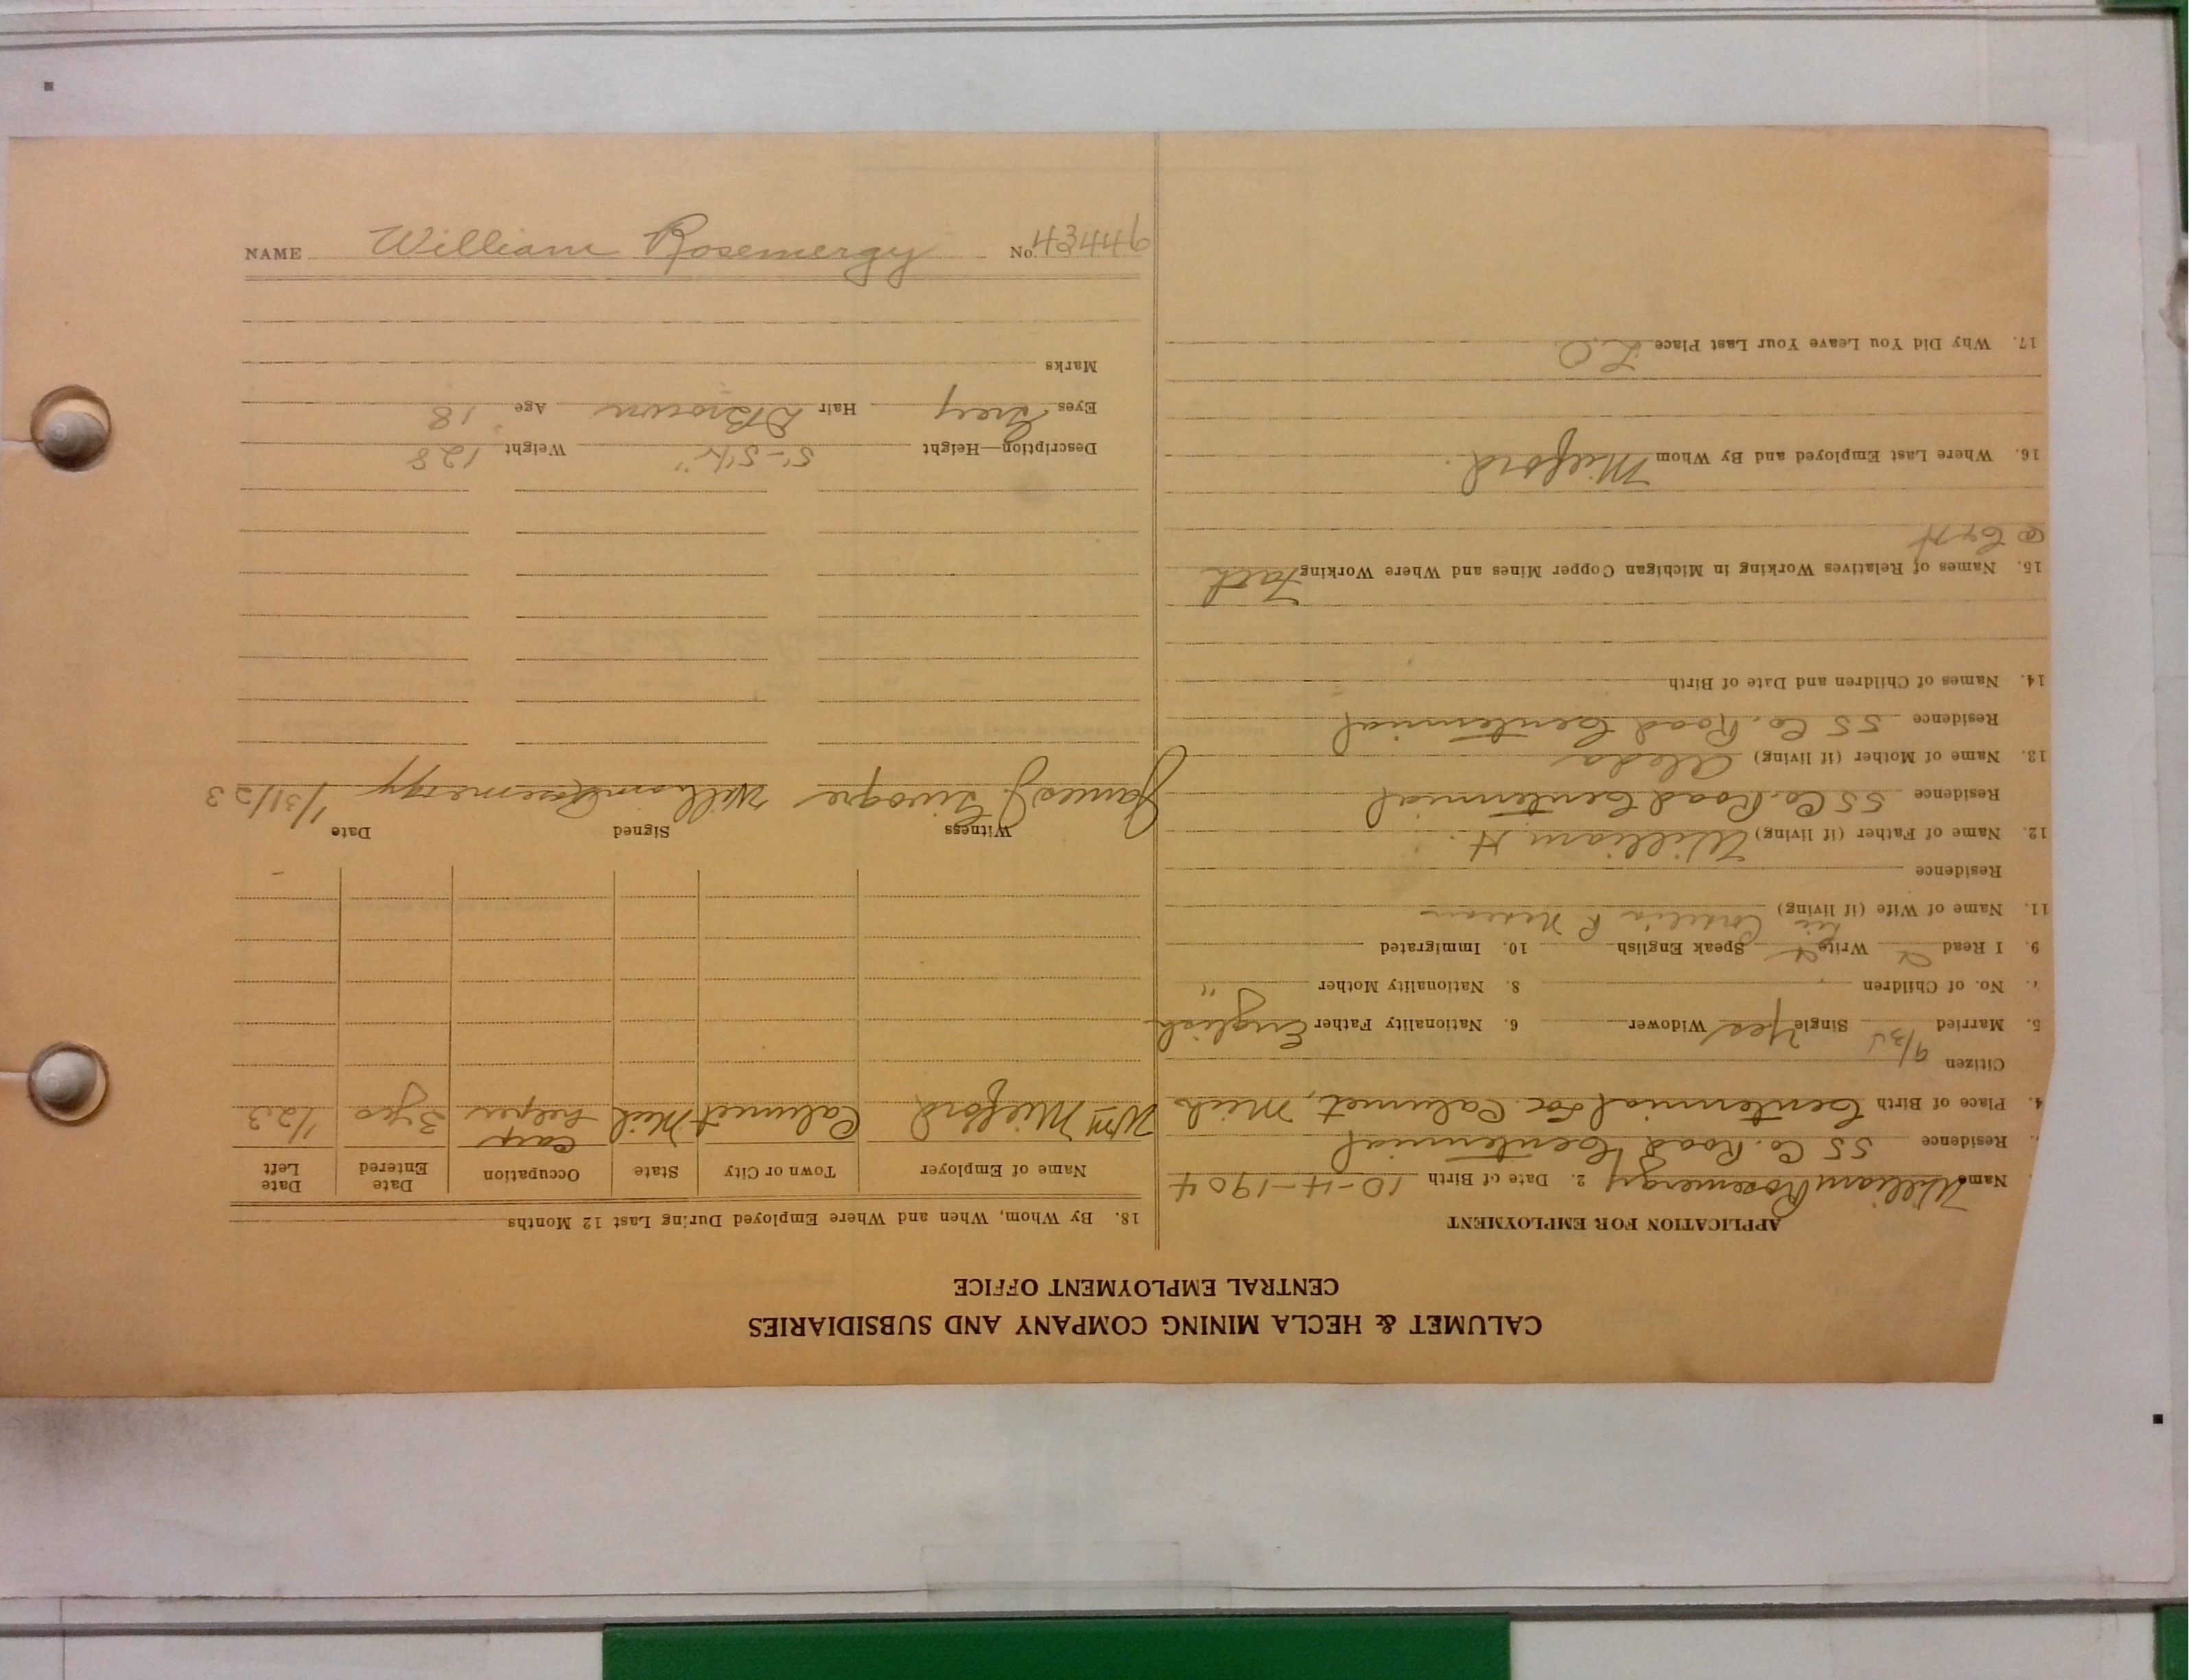 CALUMET & HECLA MINING COMPANY AND SUBSIDIARIES
CENTRAL EMPLOYMENT OFFICE
APPLICATION FOR EMPLOYMENT
Name William Rosemergy 2. Date of Birth 10-14-1904
Residence 55 Co. Road Centennial
4. Place of Birth Centennial Loc. Calumet, Mich
Citizen
5. Married 9/35 Single Yes Widower 6. Nationality Father English
No. of Children 8. Nationality Mother "
9. I Read Write Speak English 10. Immigrated
11. Name of Wife (if living) Cordelia R
Residence
12. Name of Father (if living) William H.
Residence 55 Co. Road Centennial
13. Name of Mother (if living) Aleda
Residence 55 Co. Road Centennial
14. Names of Children and Date of Birth
15. Names of Relatives Working in Michigan Copper Mines and Where Working Fath
@ C&H
16. Where Last Employed and By Whom Milford.
17. Why Did You Leave Your Last Place L.O.
18. By Whom, When and Where Employed During Last 12 Months
Name of Employer Town or City State Occupation Date Entered Date Left
Wm Milford Calumet Mich Carp helper 3 yrs 1/23
Witness Signed Date
James J. William Rosemergy 1/31/23
Description—Height 5'-5½" Weight 128
Eyes Grey Hair D Brown Age 18
Marks
NAME William Rosemergy No. 43446